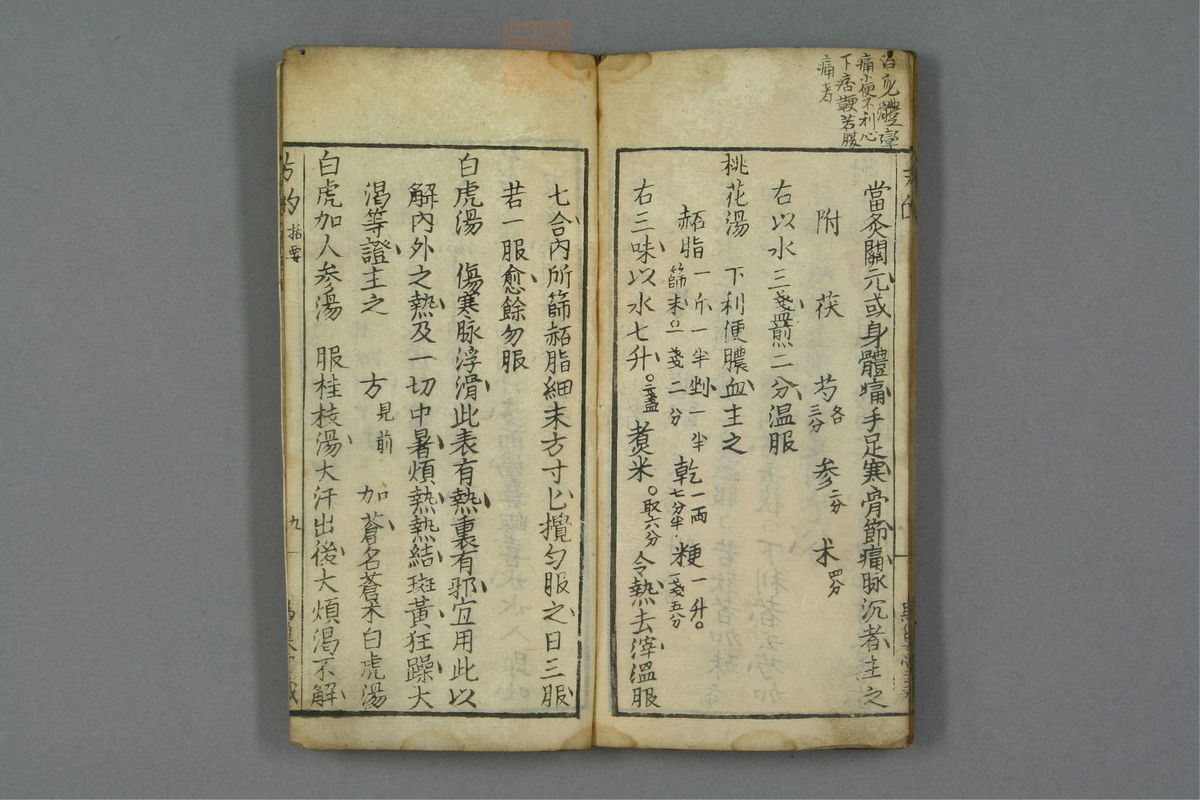 治身體攣
痛小便不利心
下痞鞕若腹
痛者
當灸關元或身體痛手足寒骨節痛脉沉者主之
附 茯 芍各三分 参二分 朮四分
右以水三盞煎二分温服
桃花湯 下利便膿血主之
赭脂一斤一半剉一半篩末○一盞二分 乾一両七分半 粳一升○一盞五分
右三味以水七升○三盞煑米○取六分令熱去滓温服
七合内所篩赭脂細末方寸匕攪匀服之日三服
若一服愈餘勿服
白虎湯 傷寒脉浮滑此表有熱裏有邪宜用此以
解内外之熱及一切中暑煩熱熱結斑黃狂躁大
渴等證主之 方見前 加蒼名蒼朮白虎湯
白虎加人参湯 服桂枝湯大汗出後大煩渴不解
方的 指要
九